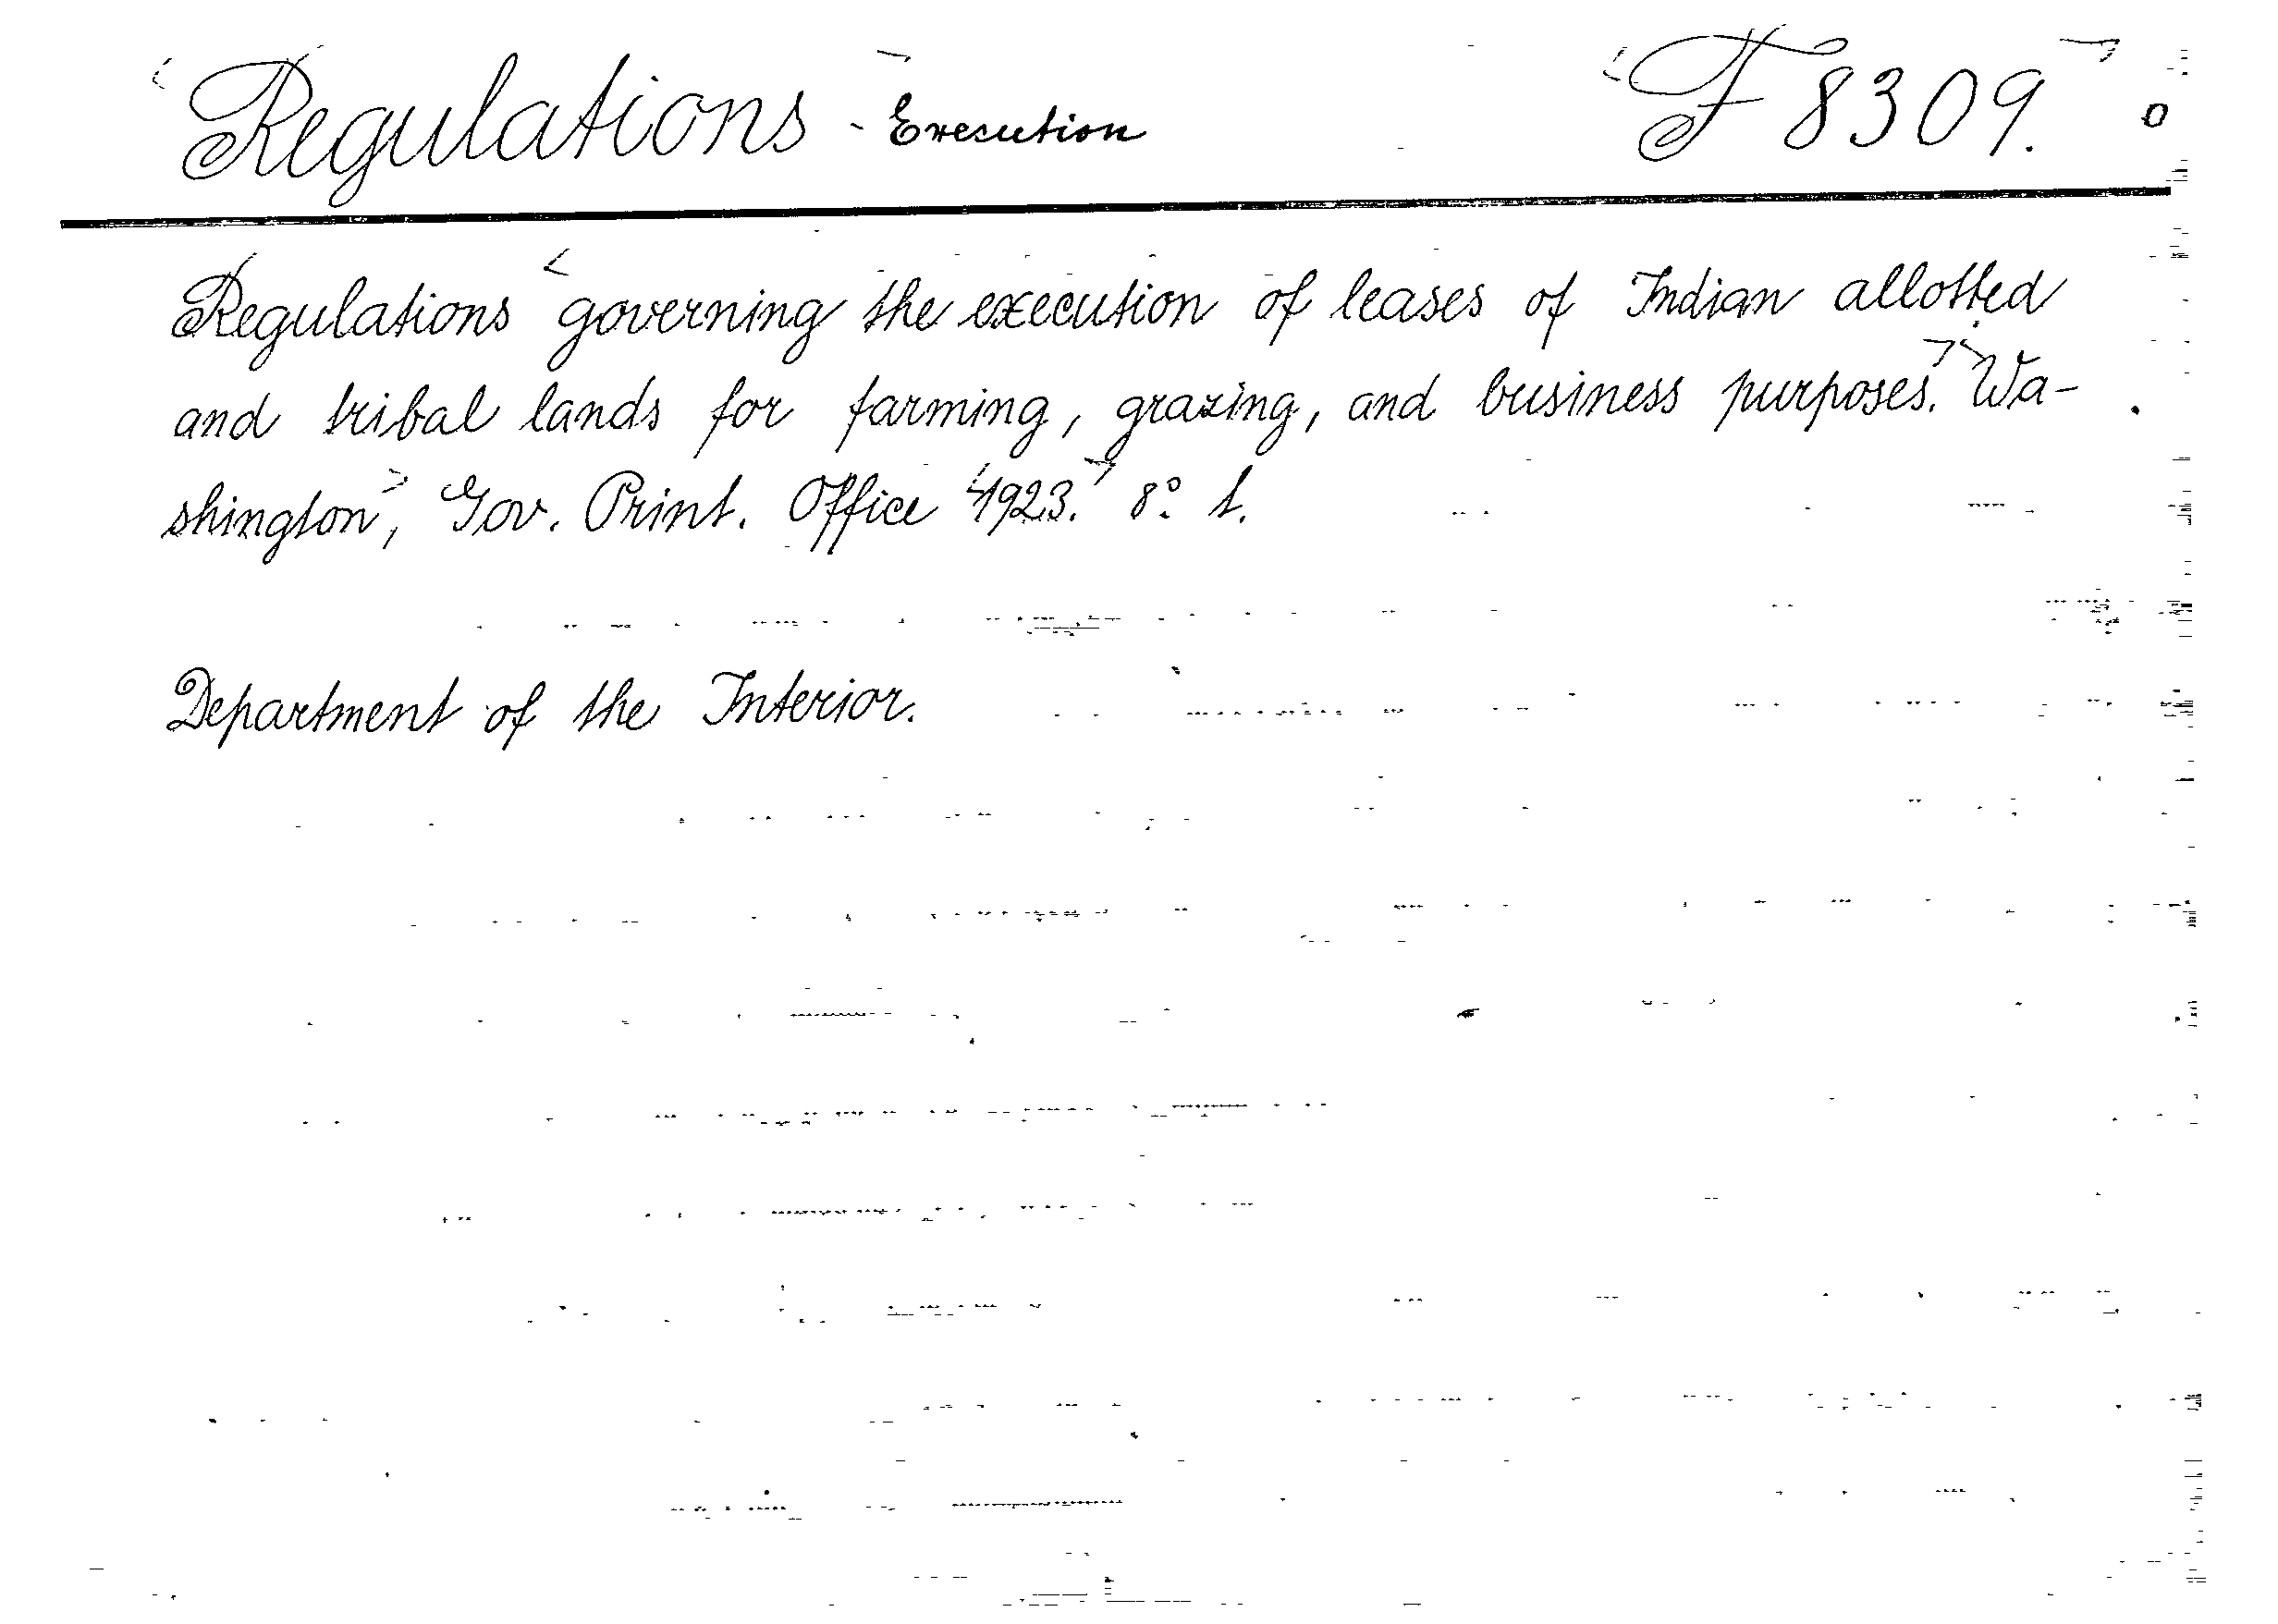 Regulations - Execution F 8309.
Regulations governing the execution of leases of Indian allotted
and tribal lands for farming, grazing, and business purposes. Wa-
shington, Gov. Print. Office 1923. 8°. t.
Department of the Interior.